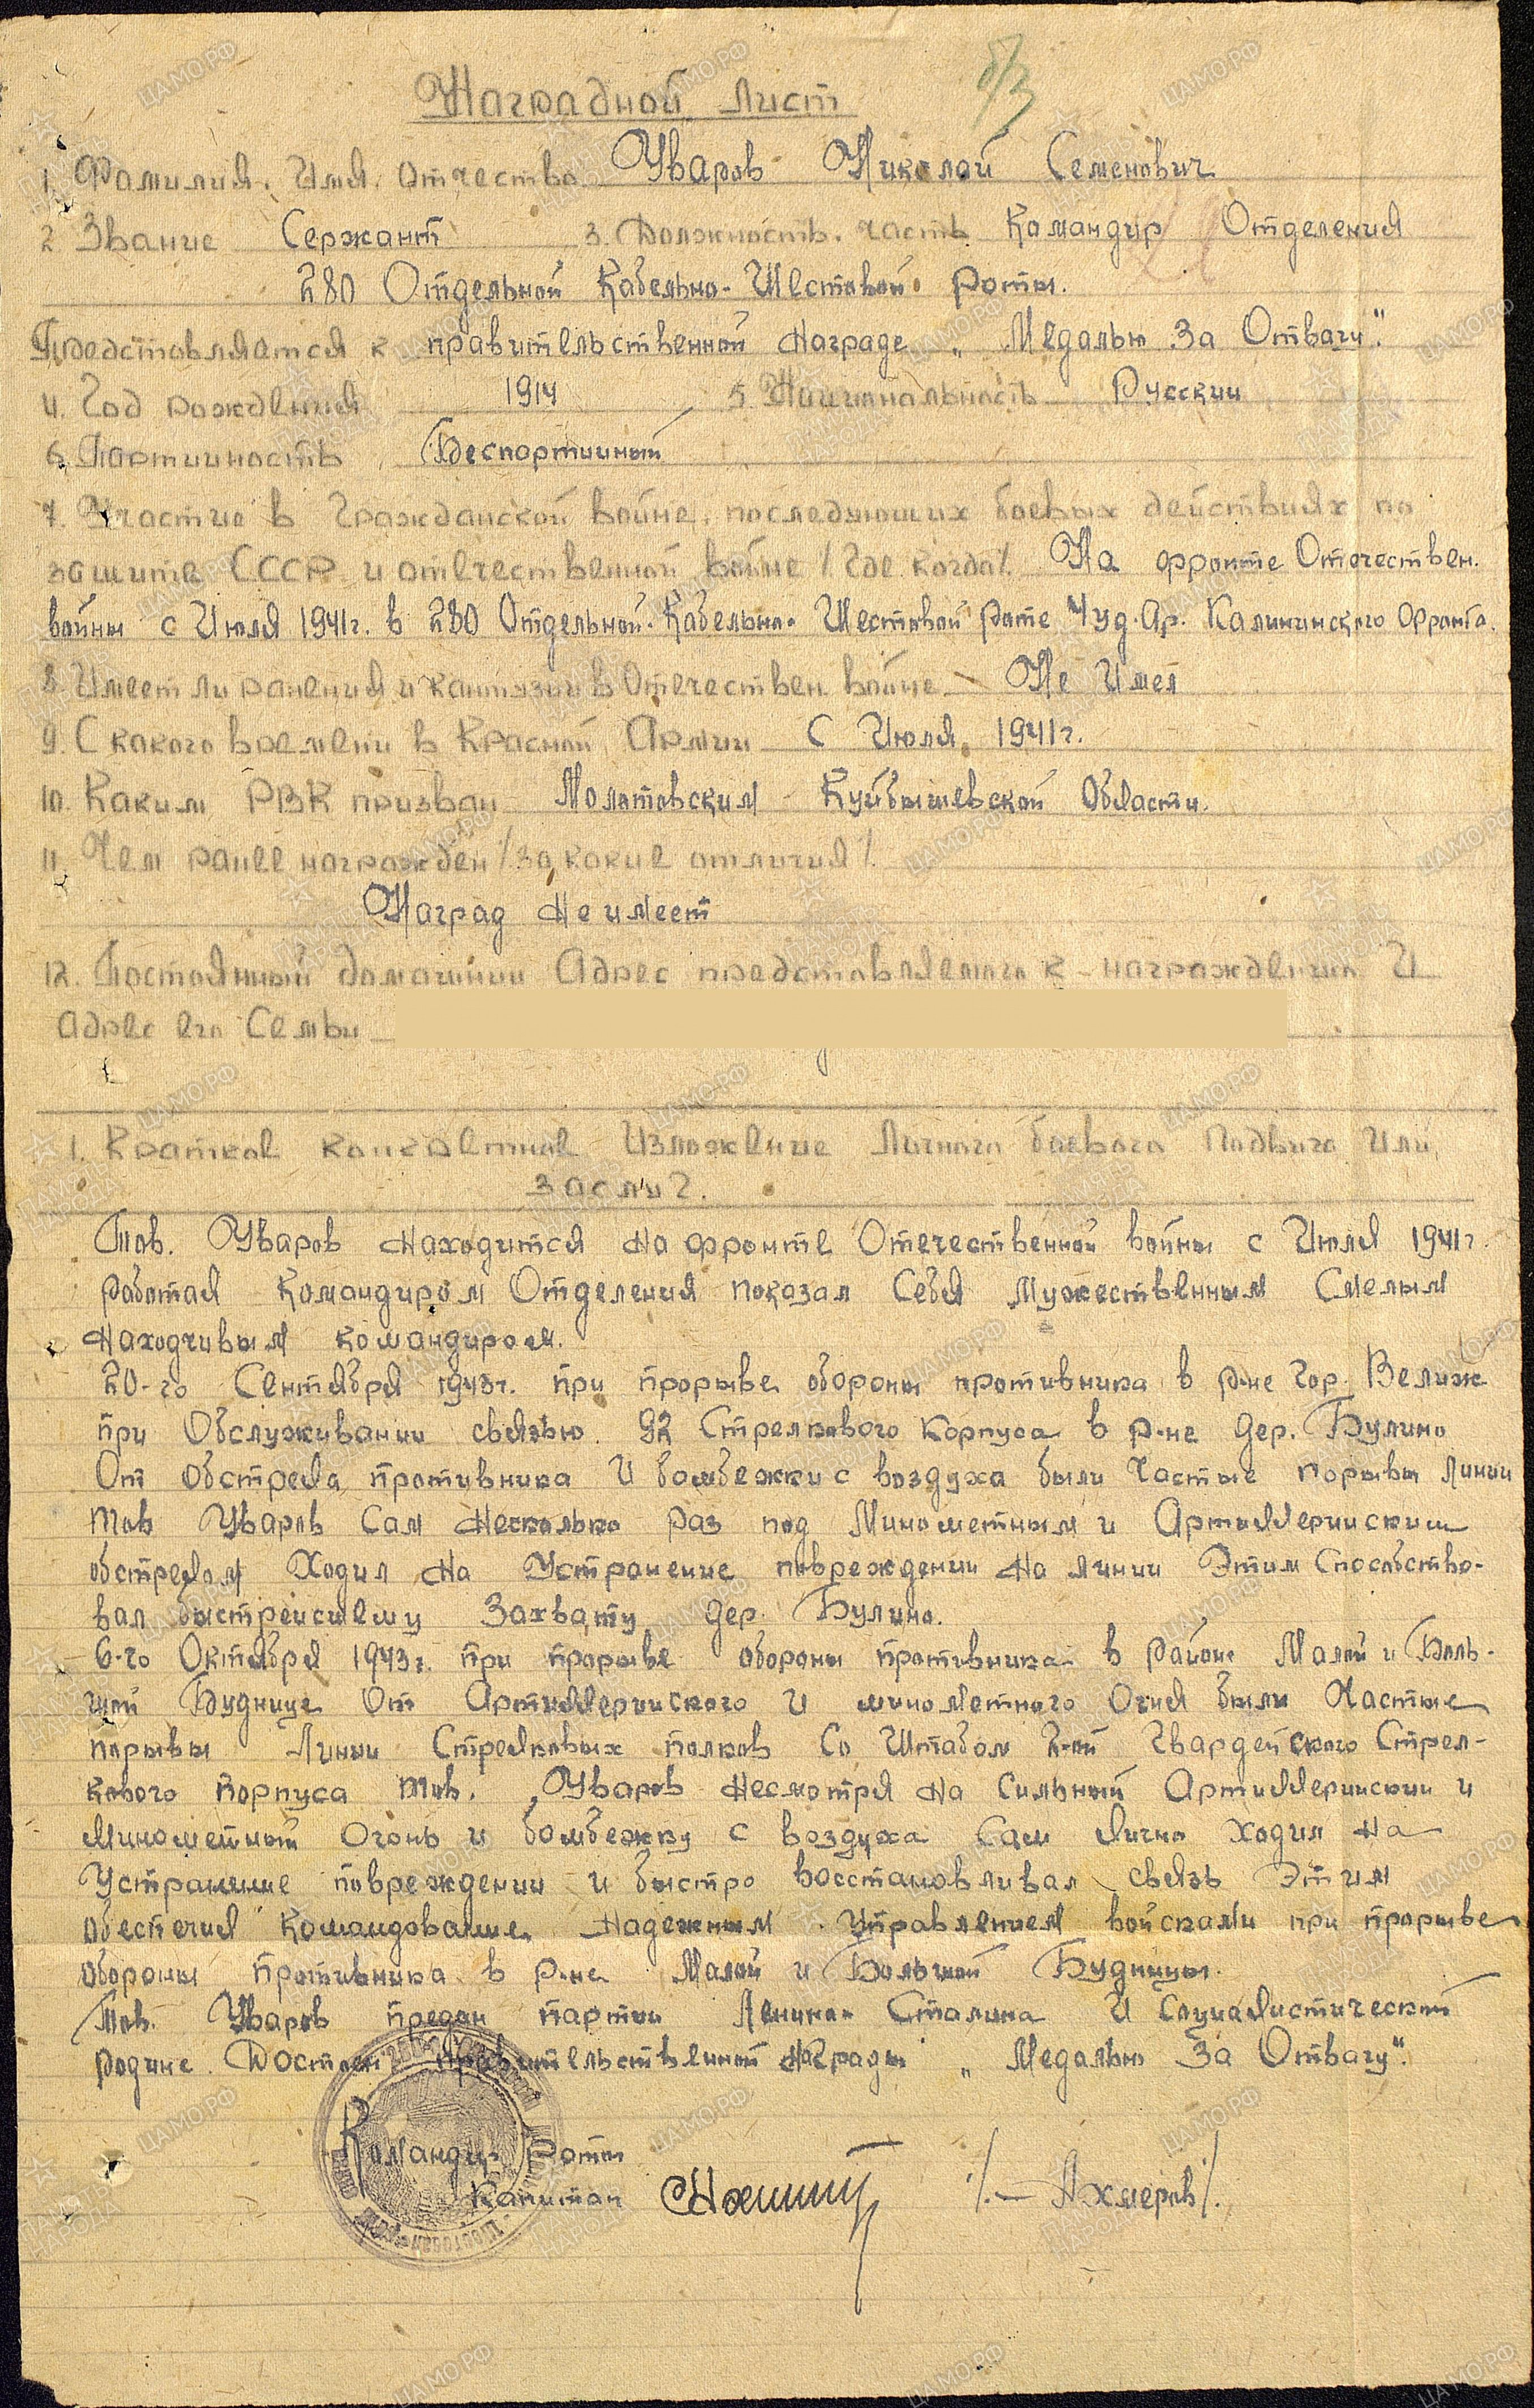 б/з
Наградной лист
1. Фамилия, Имя, Отчество Уваров Николай Семенович
2. Звание Сержант 3. Должность, часть Командир Отделения
280 Отдельной Кабельно-Шестовой Роты.
Представляется к правительственной Награде „Медалью За Отвагу".
4. Год рождения 1914 5. Национальность Русский
6. Партийность Беспартийный
7. Участие в Гражданской войне, последующих боевых действиях по
защите СССР и отечественной войне /Где, когда/. На фронте Отечествен.
войны с Июля 1941г. в 280 Отдельной-Кабельно-Шестовой роте 4 уд. Ар. Калининского фронта.
8. Имеет ли ранения и контузии в Отечествен. войне Не Имел
9. С какого времени в Красной Армии С Июля 1941г.
10. Каким РВК призван Молотовским Куйбышевской Области.
11. Чем ранее награжден /за какие отличия/.
Наград не имеет
12. Постоянный домашний Адрес представляемого к награждению И
адрес его Семьи
1. Краткое конкретное Изложение Личного боевого Подвига Или
заслуг.
Тов. Уваров находится на фронте Отечественной войны с Июля 1941г.
работая Командиром Отделения показал Себя Мужественным Смелым
находчивым командиром.
20-го Сентября 1943г. при прорыве обороны противника в р-не Гор. Велиж
при Обслуживании связью 92 Стрелкового Корпуса в р-не дер. Булино
От Обстрела противника И бомбежки с воздуха были Частые порывы линии
тов Уваров Сам несколько раз под Минометным и Артиллерийским
обстрелом Ходил на Устранение повреждении на линии Этим Способство-
вал быстрейшему Захвату дер. Булино.
6-го Октября 1943г. при прорыве обороны противника в районе Малой и Боль-
шой Будницы От Артиллерийского И минометного Огня были Частые
порывы Линии Стрелковых полков Со Штабом 2-ой Гвардейского Стрел-
кового Корпуса тов. Уваров несмотря на Сильный Артиллерийский и
Минометный Огонь и бомбежку с воздуха Сам лично Ходил на
Устранение повреждении и быстро восстановливал связь Этим
обеспечил Командование надежным Управлением войсками при прорыве
обороны противника в р-не Малой и Большой Будницы.
Тов. Уваров предан партии Ленина-Сталина И Социалистической
родине. Достоен правительственной награды „Медалью За Отвагу".
Командир Роты
Капитан /-Ахмеров/.